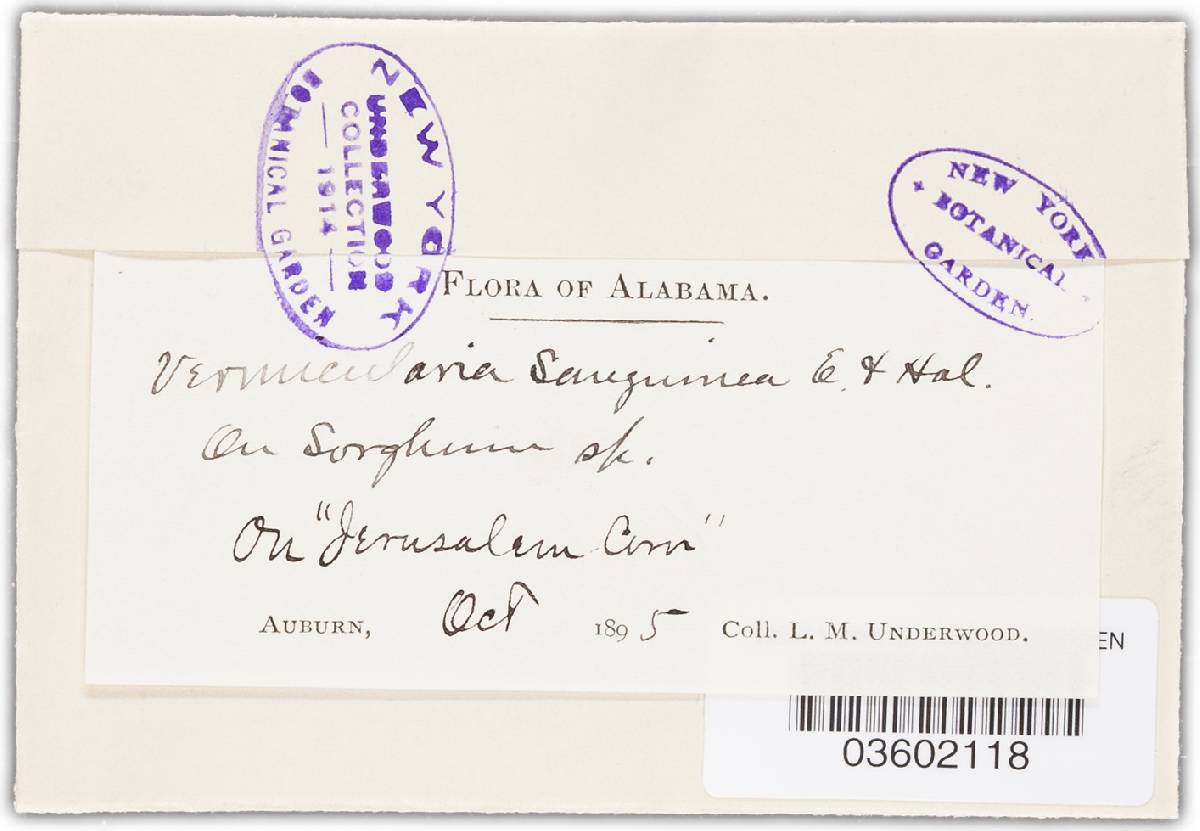 NEW YORK
BOTANICAL GARDEN
UNDERWOOD
COLLECTION
— 1914 —
NEW YORK
* BOTANICAL *
GARDEN.
FLORA OF ALABAMA.
Vermicularia Sanguinea E. & Hal.
On Sorghum sp.
On "Jerusalem Corn"
AUBURN, Oct 1895 Coll. L. M. UNDERWOOD.
EN
03602118